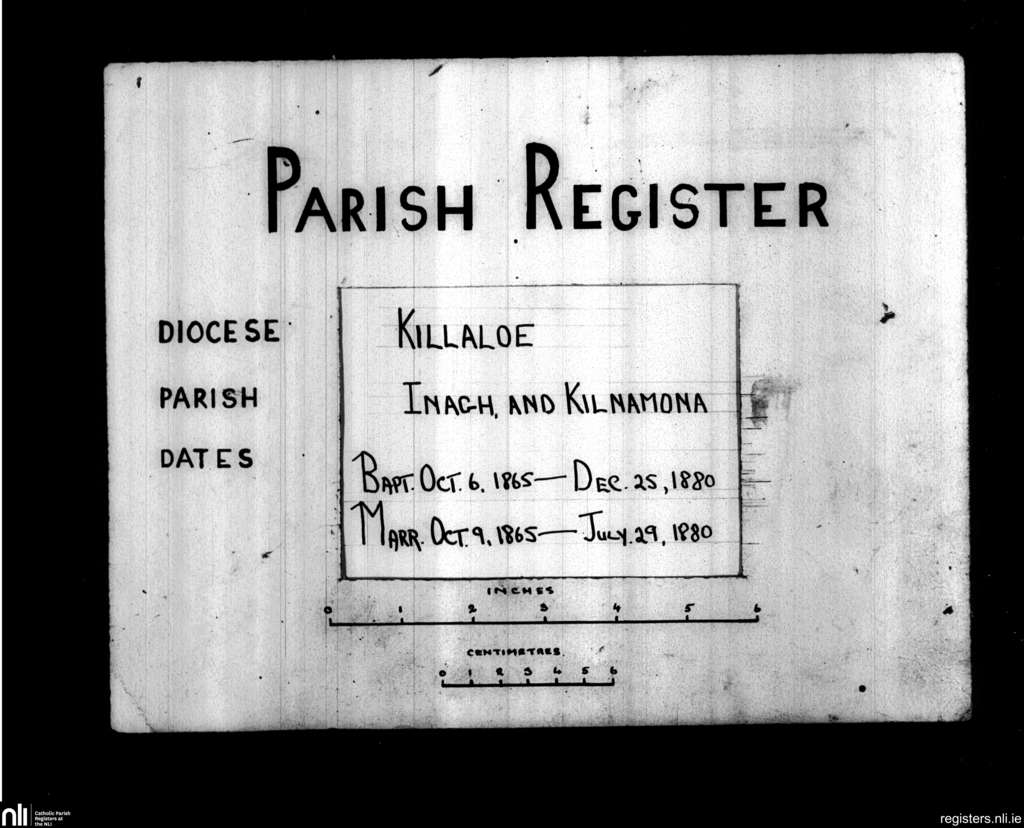 PARISH REGISTER
DIOCESE KILLALOE
PARISH INAGH, AND KILNAMONA
DATES BAPT. OCT. 6, 1865 — DEC. 25, 1880
MARR. OCT. 9, 1865 — JULY. 29, 1880
INCHES
0 1 2 3 4 5 6
CENTIMETRES
0 1 2 3 4 5 6
nli Catholic Parish
Registers at
the NLI
registers.nli.ie